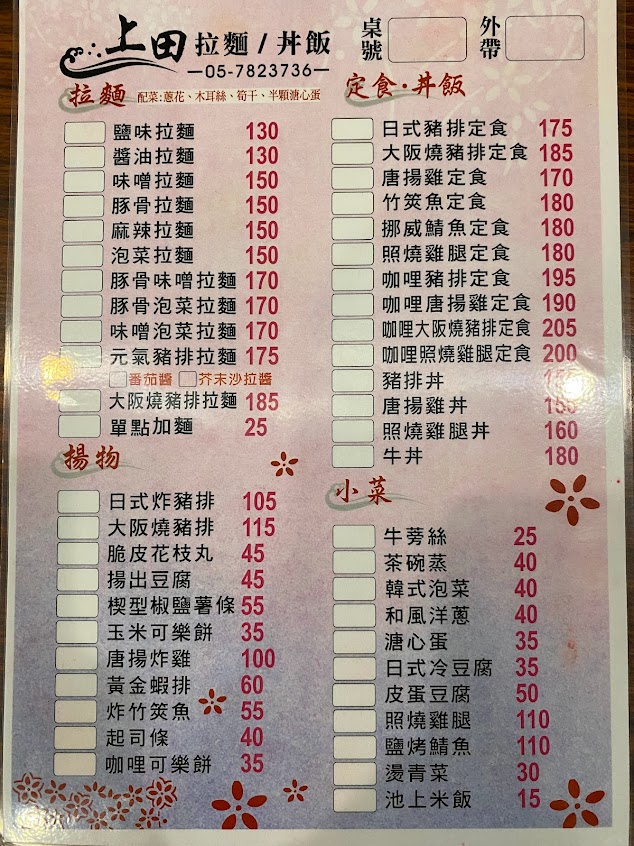 上田 拉麵 / 丼飯
05-7823736
桌號
外帶
拉麵 配菜:蔥花、木耳絲、筍干、半顆溏心蛋
鹽味拉麵 130
醬油拉麵 130
味噌拉麵 150
豚骨拉麵 150
麻辣拉麵 150
泡菜拉麵 150
豚骨味噌拉麵 170
豚骨泡菜拉麵 170
味噌泡菜拉麵 170
元氣豬排拉麵 175
番茄醬 芥末沙拉醬
大阪燒豬排拉麵 185
單點加麵 25
揚物
日式炸豬排 105
大阪燒豬排 115
脆皮花枝丸 45
揚出豆腐 45
楔型椒鹽薯條 55
玉米可樂餅 35
唐揚炸雞 100
黃金蝦排 60
炸竹筴魚 55
起司條 40
咖哩可樂餅 35
定食·丼飯
日式豬排定食 175
大阪燒豬排定食 185
唐揚雞定食 170
竹筴魚定食 180
挪威鯖魚定食 180
照燒雞腿定食 180
咖哩豬排定食 195
咖哩唐揚雞定食 190
咖哩大阪燒豬排定食 205
咖哩照燒雞腿定食 200
豬排丼
唐揚雞丼
照燒雞腿丼 160
牛丼 180
小菜
牛蒡絲 25
茶碗蒸 40
韓式泡菜 40
和風洋蔥 40
溏心蛋 35
日式冷豆腐 35
皮蛋豆腐 50
照燒雞腿 110
鹽烤鯖魚 110
燙青菜 30
池上米飯 15